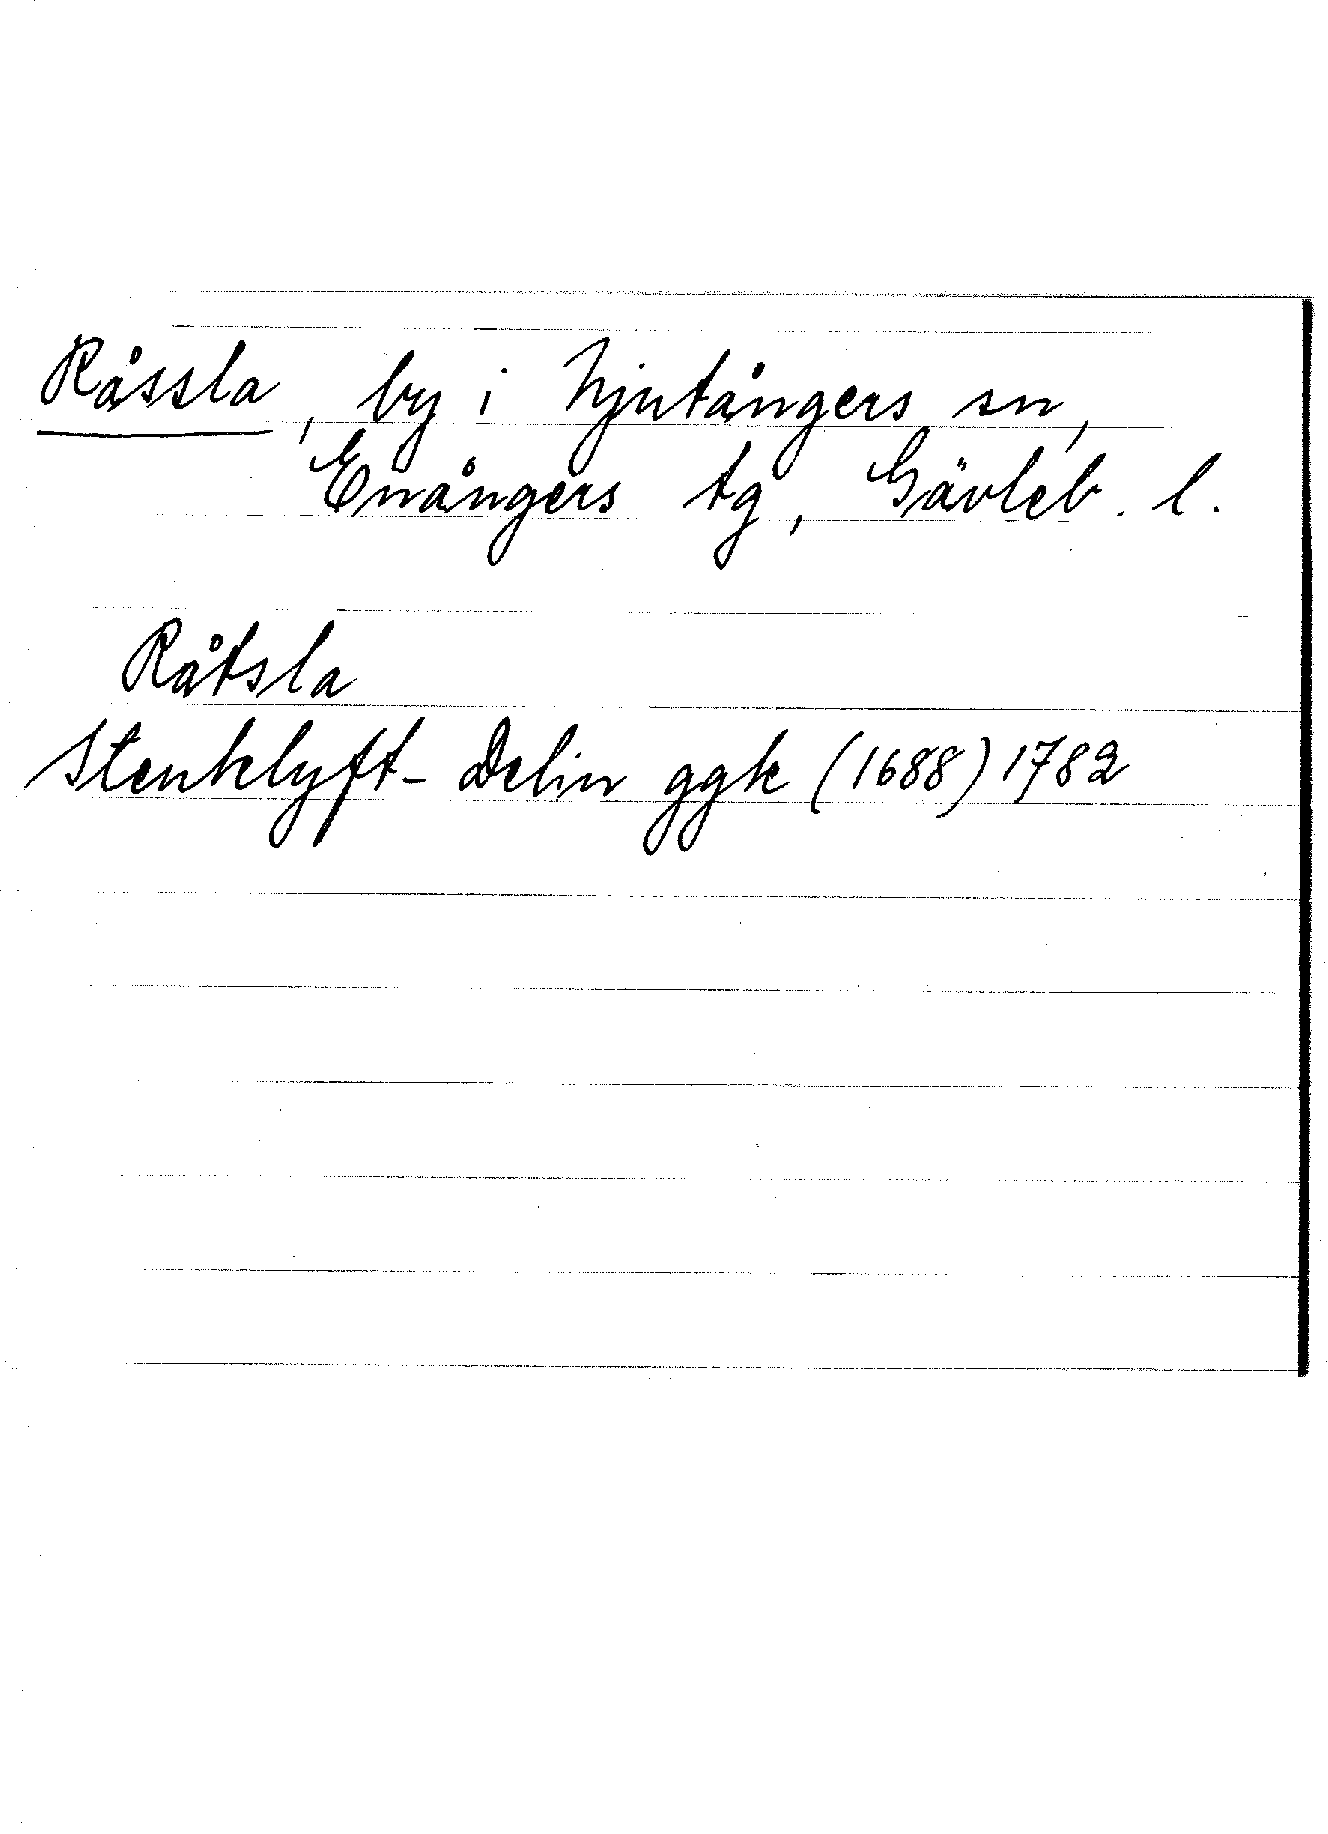 Råssla, by i Njutångers sn,
Enångers tg, Gävleb. l.
Råtsla
Stenklyft- Delin ggk (1688) 1782